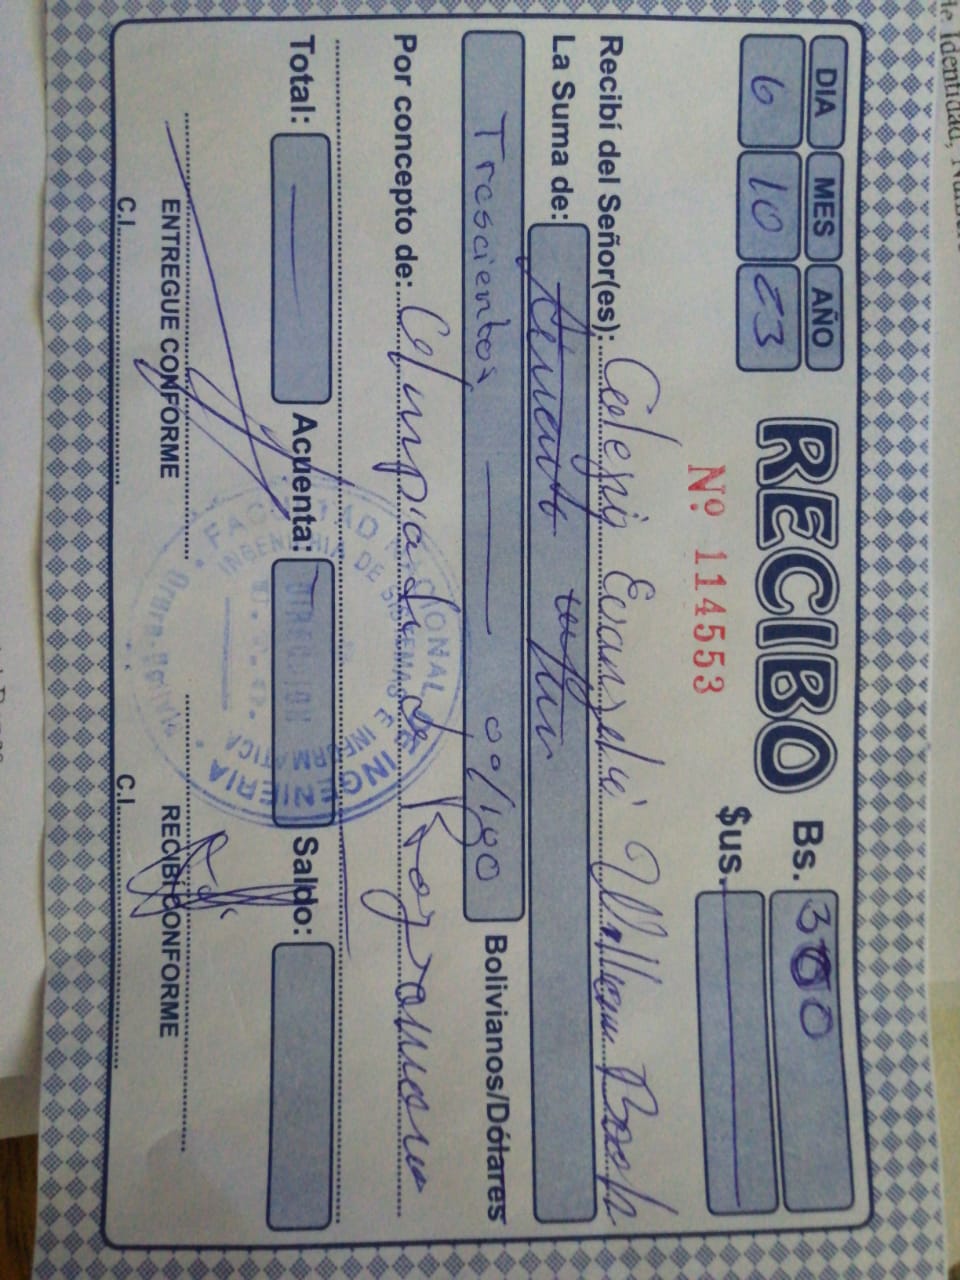 de Identidad, Número
DIA MES AÑO
6 10 23
RECIBO
Nº 114553
Bs. 300
$us.
Recibí del Señor(es): Colegio Evangelico William Booth
La Suma de:
Trescientos 00/100 Bolivianos/Dólares
Por concepto de: Olimpiada de Programacion
Total: Acuenta: Saldo:
ENTREGUE CONFORME
C.I.
RECIBI CONFORME
C.I.
FACULTAD NACIONAL DE INGENIERIA
INGENIERIA DE SISMEMAS E INFORMATICA
DIRECCION
U.T.O.
Oruro - Bolivia